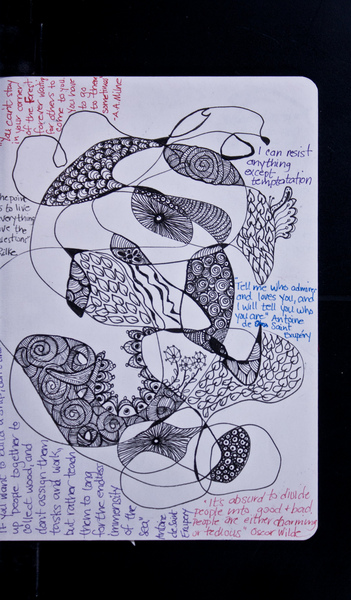 You can't stay
in your corner
of the Forest
forever waiting
for others to
come to you.
You have
to go
to them
sometimes
-A.A. Milne
I can resist
anything
except
temptatation
he point
s to live
verything
ive the
uestion"
Rilke
Tell me who admires
and loves you, and
I will tell you who
you are" Antoine
de Saint
Exupéry
If you want to build a ship, don't
up people together to
collect wood and
dont assign them
tasks and work,
but rather teach
them to long
for the endless
immensity
of the
sea"
Antoine
de Saint
Exupery
"It's absurd to divide
people into good + bad.
People are either charming
or tedious" Oscar Wilde